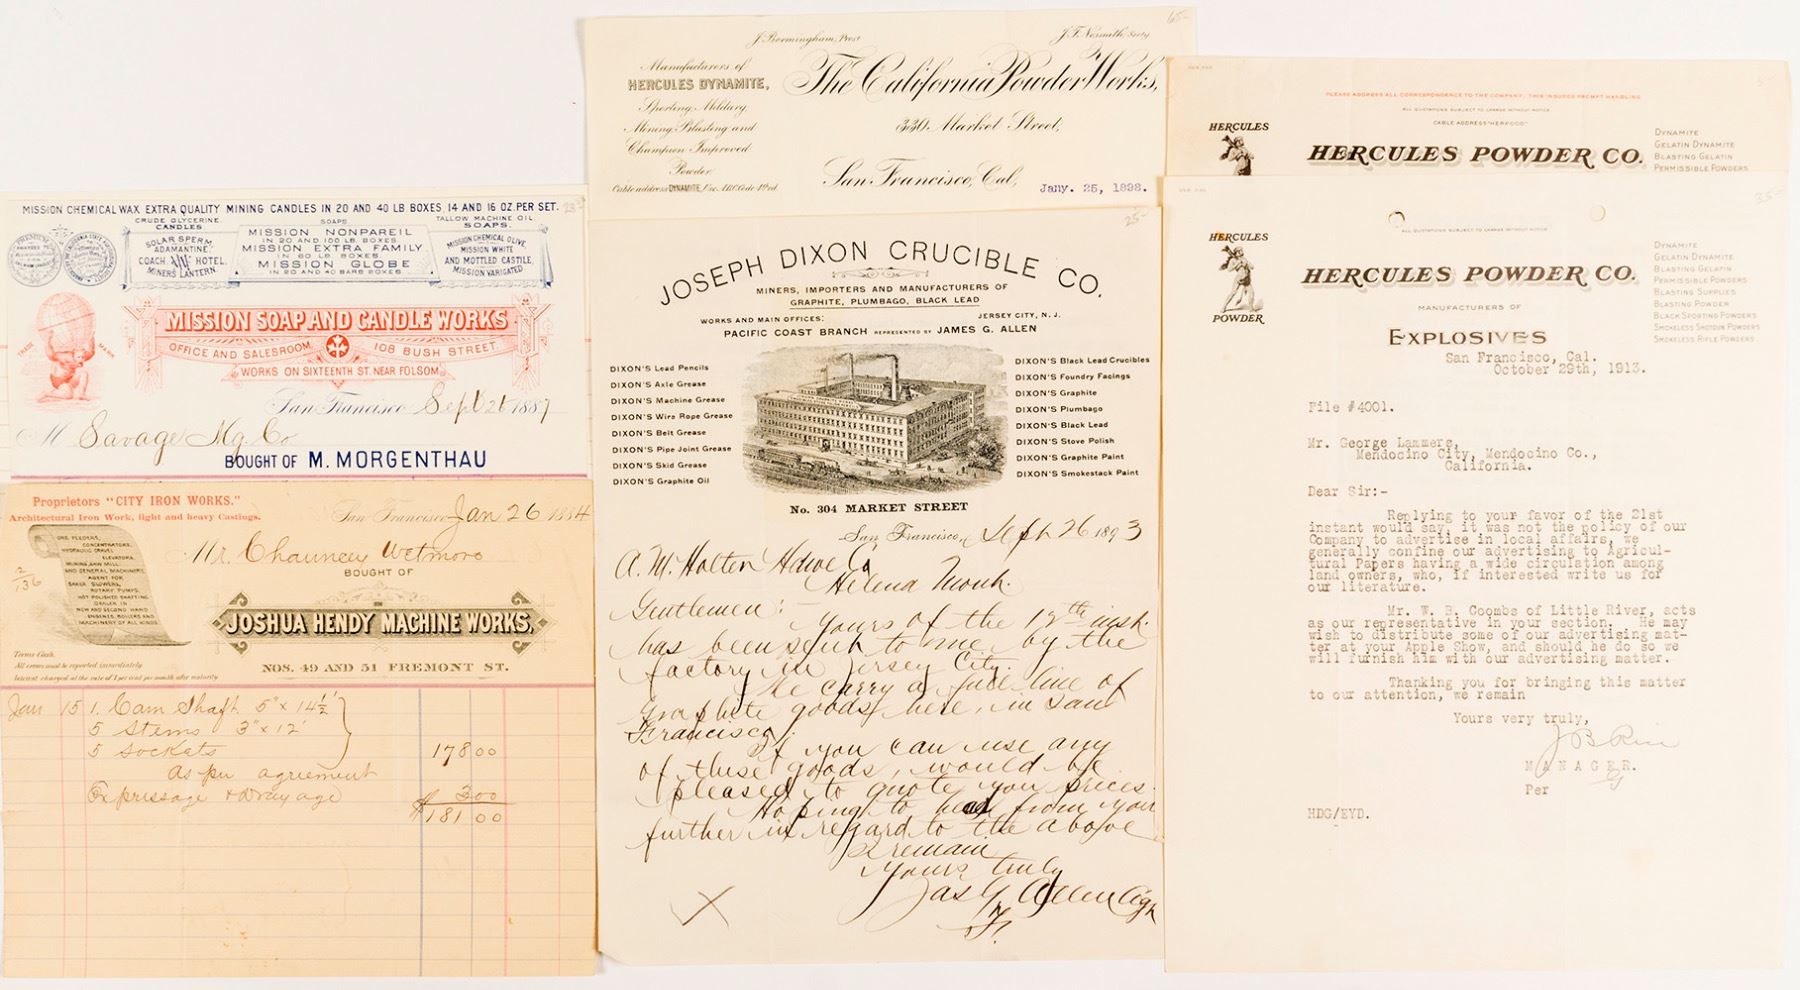 MISSION CHEMICAL WAX EXTRA QUALITY MINING CANDLES IN 20 AND 40 LB. BOXES, 14 AND 16 OZ. PER SET.
CRUDE GLYCERINE.
CANDLES
SOLAR SPERM,
ADAMANTINE,
COACH HOTEL,
MINERS LANTERN.
SOAPS
MISSION NONPAREIL
IN 20 AND 100 LB. BOXES
MISSION EXTRA FAMILY
IN 80 LB. BOXES
MISSION GLOBE
IN 20 AND 40 BARS BOXES
TALLOW MACHINE OIL
SOAPS.
MISSION CHEMICAL OLIVE,
MISSION WHITE
AND MOTTLED CASTILE,
MISSION VARIGATED
TRADE MARK
MISSION SOAP AND CANDLE WORKS
OFFICE AND SALESROOM, 108 BUSH STREET.
WORKS ON SIXTEENTH ST. NEAR FOLSOM
San Francisco Sept 26 1887
M Savage Mg. Co
BOUGHT OF M. MORGENTHAU
Proprietors "CITY IRON WORKS."
Architectural Iron Work, light and heavy Castings.
ORE FEEDERS,
CONCENTRATORS,
HYDRAULIC GRAVEL
ELEVATORS,
MINING, SAW MILL
AND GENERAL MACHINERY
AGENT FOR
BAKER BLOWERS,
ROTARY PUMPS,
HOT POLISHED SHAFTING
DEALER IN
NEW AND SECOND HAND
ENGINES, BOILERS AND
MACHINERY OF ALL KINDS
San Francisco Jan 26 1884
Mr. Chauncey Wetmore
BOUGHT OF
JOSHUA HENDY MACHINE WORKS,
NOS. 49 AND 51 FREMONT ST.
Terms Cash.
All errors must be reported immediately
Interest charged at the rate of 1 per cent per month after maturity
Jan 15 1. Cam Shaft 5" x 14½'
5 Stems 3" x 12'
5 Sockets 178 00
as per agriement
Expressage & Drayage 3 00
$181 00
65-
J. Bermingham, Prest J. F. Nesmith, Secty
Manufacturers of
HERCULES DYNAMITE,
Sporting, Military,
Mining, Blasting and
Champion Improved
Powder
Cable address DYNAMITE, Use ABC Code 4th ed.
The California Powder Works,
330 Market Street,
San Francisco, Cal, Jany. 25, 1898.
25-
JOSEPH DIXON CRUCIBLE CO.
MINERS, IMPORTERS AND MANUFACTURERS OF
GRAPHITE, PLUMBAGO, BLACK LEAD
WORKS AND MAIN OFFICES: JERSEY CITY, N. J.
PACIFIC COAST BRANCH REPRESENTED BY JAMES G. ALLEN
DIXON'S Lead Pencils
DIXON'S Axle Grease
DIXON'S Machine Grease
DIXON'S Wire Rope Grease
DIXON'S Belt Grease
DIXON'S Pipe Joint Grease
DIXON'S Skid Grease
DIXON'S Graphite Oil
DIXON'S Black Lead Crucibles
DIXON'S Foundry Facings
DIXON'S Graphite
DIXON'S Plumbago
DIXON'S Black Lead
DIXON'S Stove Polish
DIXON'S Graphite Paint
DIXON'S Smokestack Paint
No. 304 MARKET STREET
San Francisco, Sept 26 1893
A. M. Holten Hdwe Co
Helena Mont.
Gentlemen:
Yours of the 12th inst.
has been sent to me by the
factory in Jersey City.
We carry a full line of
Graphite goods here, in San
Francisco.
If you can use any
of these goods, would be
pleased to quote you prices.
Hoping to hear from you
further in regard to the above
I remain
Yours truly
Jas G Allen Agt
PLEASE ADDRESS ALL CORRESPONDENCE TO THE COMPANY; THIS INSURES PROMPT HANDLING
ALL QUOTATIONS SUBJECT TO CHANGE WITHOUT NOTICE
CABLE ADDRESS "HERPOCO"
HERCULES
HERCULES POWDER CO.
DYNAMITE
GELATIN DYNAMITE
BLASTING GELATIN
PERMISSIBLE POWDERS
35-
ALL QUOTATIONS SUBJECT TO CHANGE WITHOUT NOTICE
HERCULES
POWDER
HERCULES POWDER CO.
MANUFACTURERS OF
EXPLOSIVES
DYNAMITE
GELATIN DYNAMITE
BLASTING GELATIN
PERMISSIBLE POWDERS
BLASTING SUPPLIES
BLASTING POWDER
BLACK SPORTING POWDERS
SMOKELESS SHOTGUN POWDERS
SMOKELESS RIFLE POWDERS
San Francisco, Cal.
October 29th, 1913.
File #4001.
Mr. George Lammers,
Mendocino City, Mendocino Co.,
California.
Dear Sir:-
Replying to your favor of the 21st
instant would say, it was not the policy of our
Company to advertise in local affairs, we
generally confine our advertising to Agricul-
tural Papers having a wide circulation among
land owners, who, if interested write us for
our literature.
Mr. W. B. Coombs of Little River, acts
as our representative in your section. He may
wish to distribute some of our advertising mat-
ter at your Apple Show, and should he do so we
will furnish him with our advertising matter.
Thanking you for bringing this matter
to our attention, we remain
Yours very truly,
J B Rice
MANAGER.
Per
HDG/EYD.